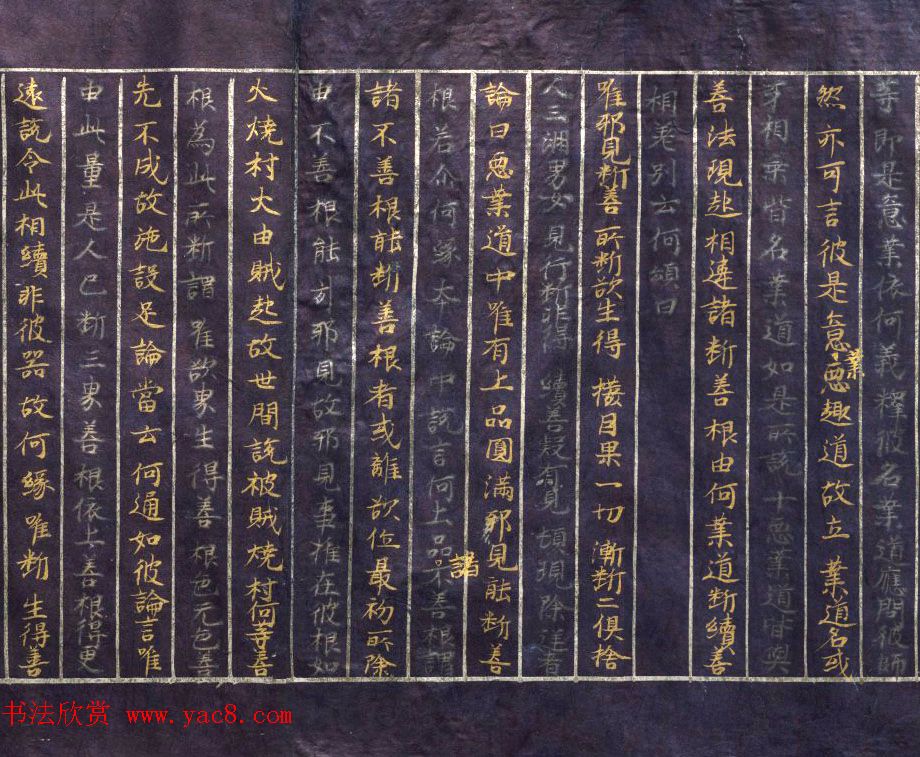 等即是意業依何義釋彼名業道應問彼師
然亦可言彼是意業惡趣道故立業道名或
互相乘皆名業道如是所說十惡業道皆與
善法現起相違諸斷善根由何業道斷續善
相差別云何頌曰
唯邪見斷善所斷欲生得 撥因果一切 漸斷二俱捨
人三洲男女見行斷非得 續善疑有見 頓現除逆者
論曰惡業道中唯有上品圓滿邪見能斷善
根若尒何緣本論中說言何上品諸不善根謂
諸不善根能斷善根者或離欲位最初所除
由不善根能引邪見故邪見事推在彼根如
火燒村火由賊起故世間說被賊燒村何等善
根為此所斷謂唯欲界生得善根色无色善
先不成故施設足論當云何通如彼論言唯
由此量是人已斷三界善根依上善根得更
遠說令此相續非彼器故何緣唯斷生得善
书法欣赏 www.yac8.com